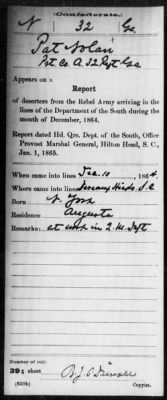 (Confederate.)
N 32 Ga
Pat Nolan
Pvt Co A 32 Regt Ga
Appears on a
Report
of deserters from the Rebel Army arriving in the
lines of the Department of the South during the
month of December, 1864.
Report dated Hd. Qrs. Dept. of the South, Office
Provost Marshal General, Hilton Head, S. C.,
Jan. 1, 1865.
When came into lines Dec. 10, 1864
Where came into lines S.C
Born N. York
Residence Augusta
Remarks: at work in Q. M. Dept
Number of roll:
39; sheet
(639b) Copyist.